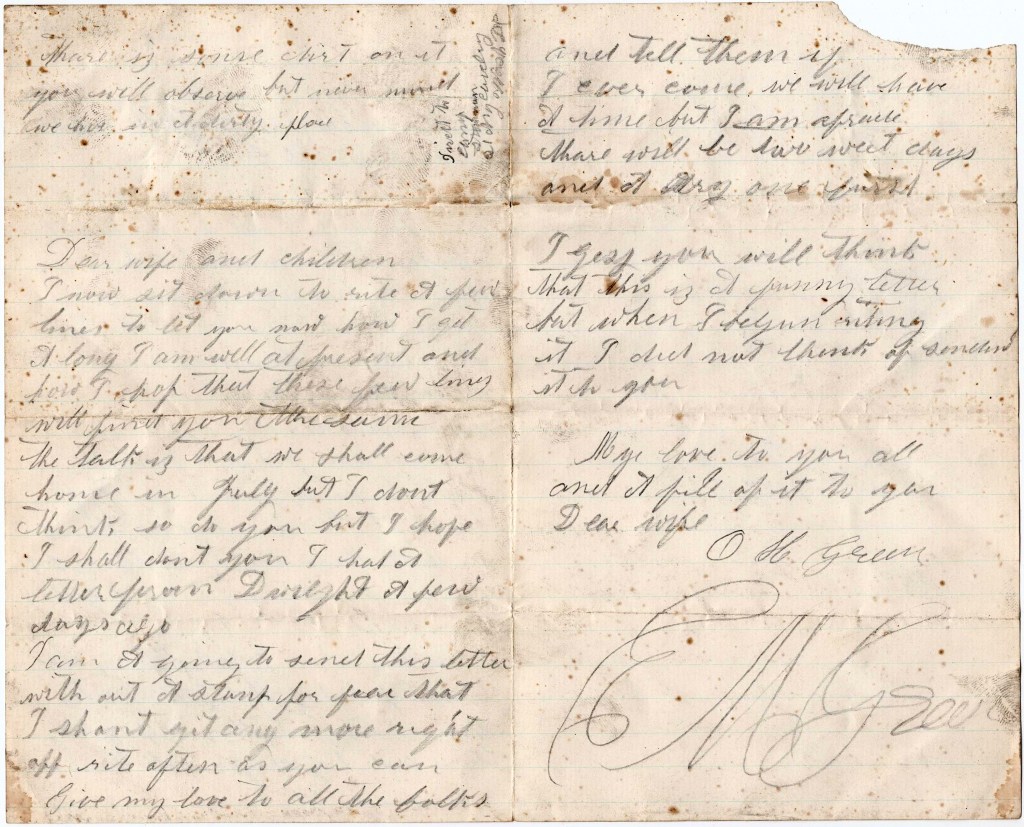 Thare is some dirt on it
you will observe but never mind
we live in a dirty place
Dear wife and children
I now sit down to rite a few
lines to let you now how I get
a long I am well at present and
how I hop that these few lines
will find you the same
the talk is that we shall come
home in July but I dont
think so do you but I hope
I shall dont you I had a
letter from Dwight a few
days ago
I am a going to send this letter
with out a stamp for fear that
I shant git any more right
off rite often as you can
Give my love to all the folks
and tell them if
I ever come, we will have
a time but I am afraid
thare will be two wet days
and a dry one furst
I gess you will think
that this is a funny letter
but when I begun riting
it I did not think of sendin
it to you
My love to you all
and a pile of it to you
Dear wife
O H. Green